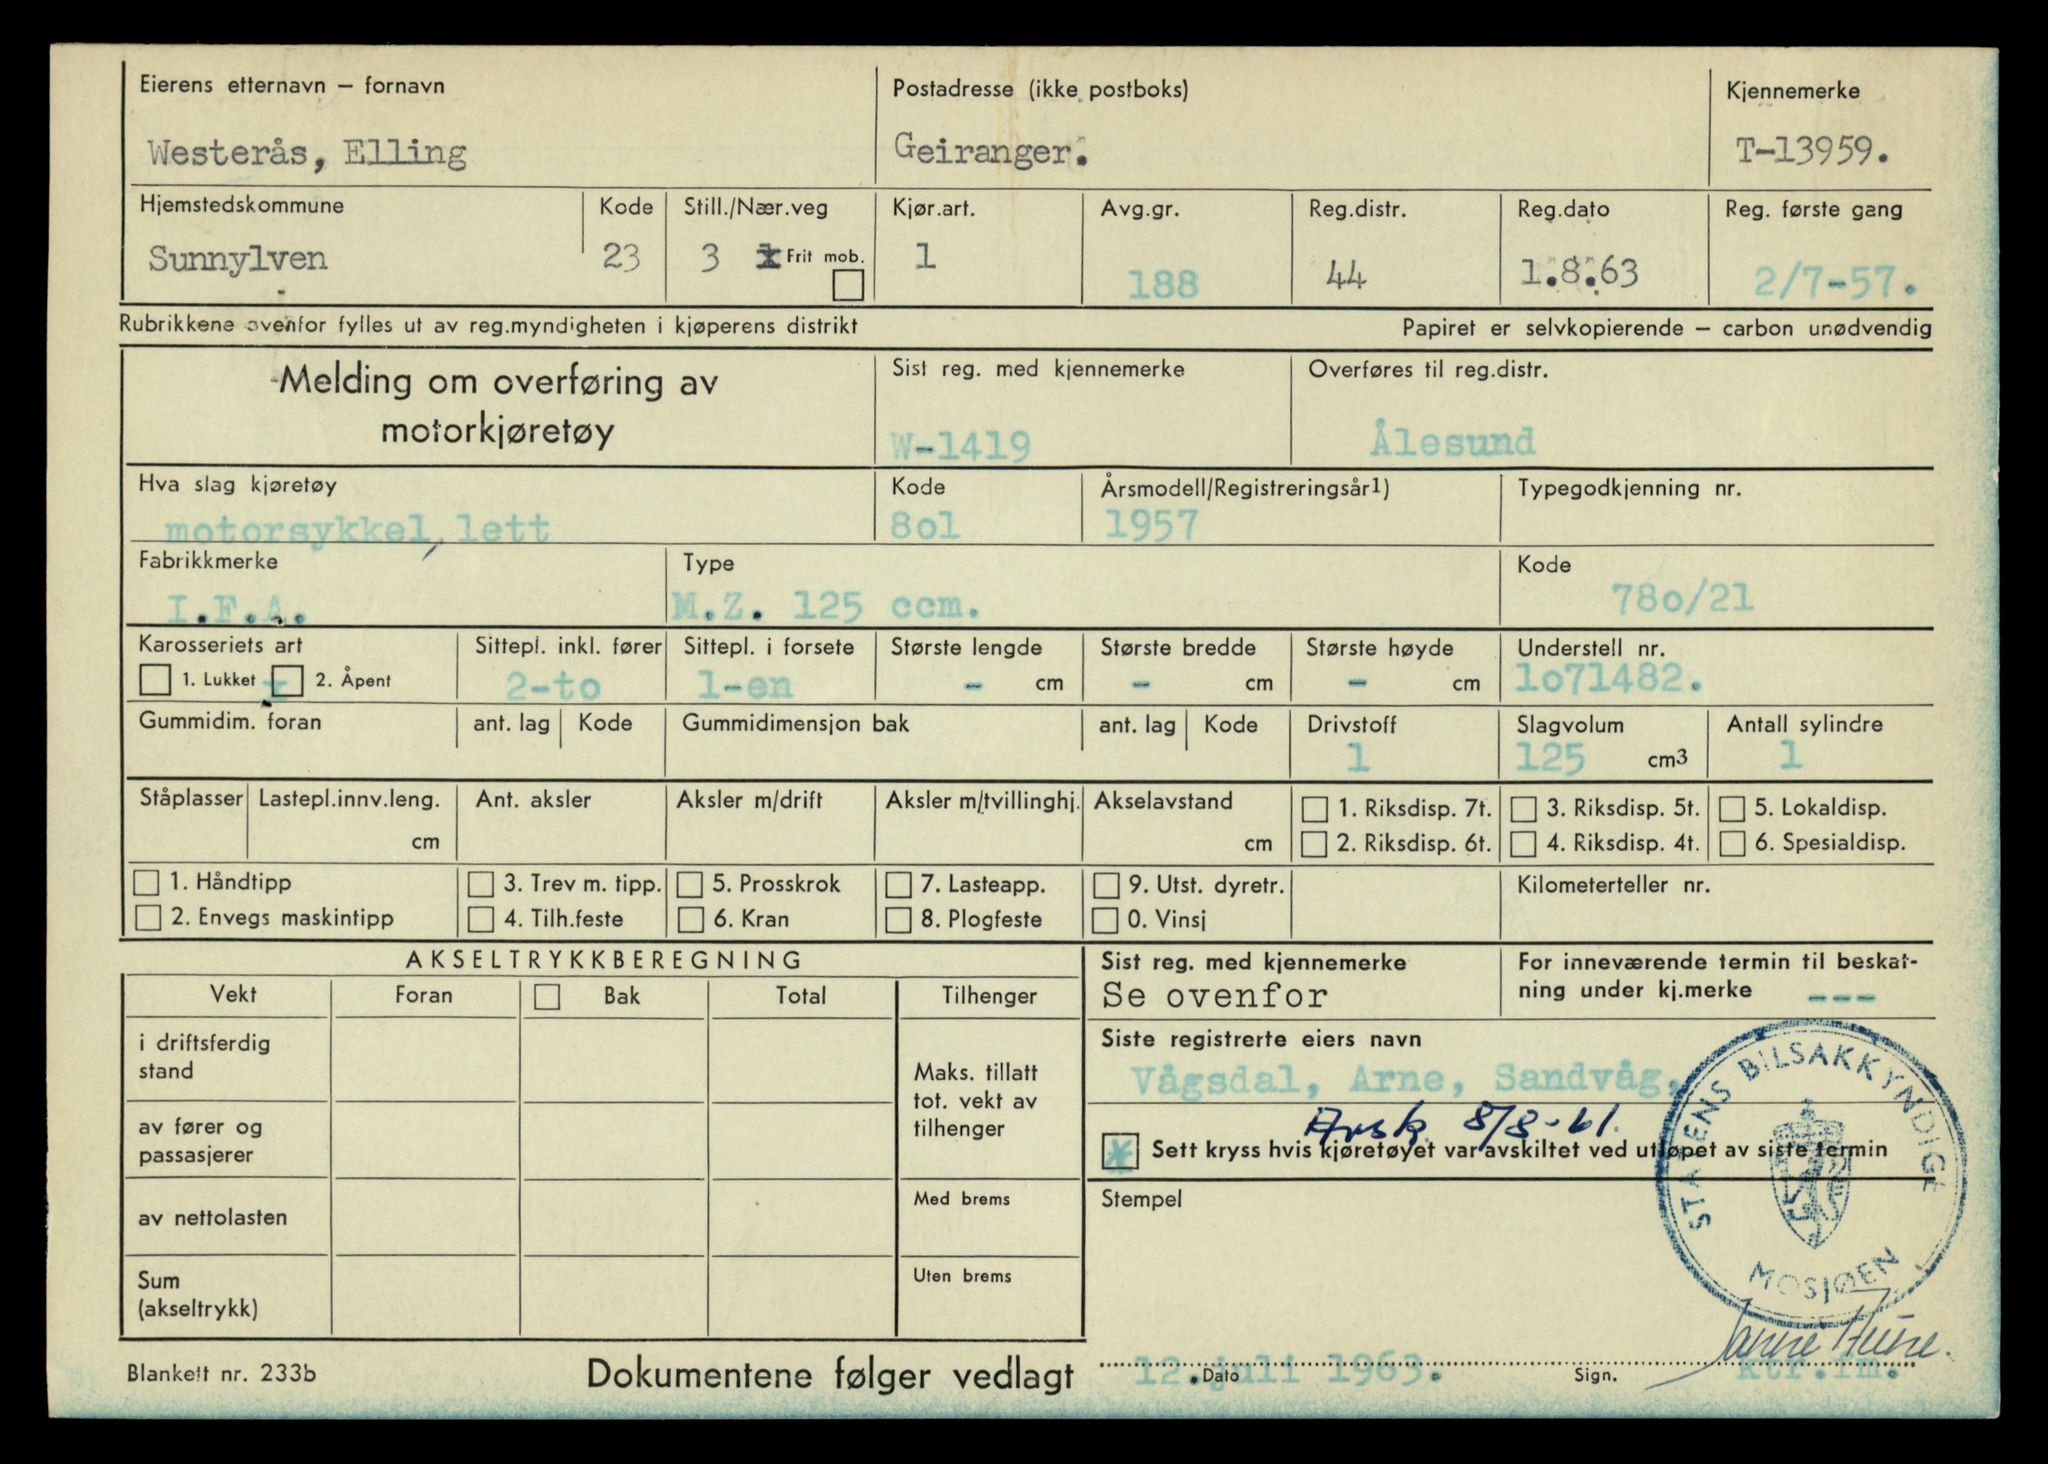 Eierens etternavn – fornavn Postadresse (ikke postboks) Kjennemerke
Westerås, Elling Geiranger. T-13959.
Hjemstedskommune Kode Still./Nær.veg Kjør.art. Avg.gr. Reg.distr. Reg.dato Reg. første gang
Sunnylven 23 3 1 Frit mob. 1 188 44 1.8.63 2/7-57.
Rubrikkene ovenfor fylles ut av reg.myndigheten i kjøperens distrikt Papiret er selvkopierende – carbon unødvendig
Melding om overføring av Sist reg. med kjennemerke Overføres til reg.distr.
motorkjøretøy W-1419 Ålesund
Hva slag kjøretøy Kode Årsmodell/Registreringsår1) Typegodkjenning nr.
motorsykkel, lett 8o1 1957
Fabrikkmerke Type Kode
I.F.A. M.Z. 125 ccm. 78o/21
Karosseriets art Sittepl. inkl. fører Sittepl. i forsete Største lengde Største bredde Største høyde Understell nr.
1. Lukket x 2. Åpent 2-to 1-en - cm - cm - cm 1o71482.
Gummidim. foran ant. lag Kode Gummidimensjon bak ant. lag Kode Drivstoff Slagvolum Antall sylindre
1 125 cm3 1
Ståplasser Lastepl.innv.leng. Ant. aksler Aksler m/drift Aksler m/tvillinghj. Akselavstand 1. Riksdisp. 7t. 3. Riksdisp. 5t. 5. Lokaldisp.
cm cm 2. Riksdisp. 6t. 4. Riksdisp. 4t. 6. Spesialdisp.
1. Håndtipp 3. Trev m. tipp. 5. Prosskrok 7. Lasteapp. 9. Utst. dyretr. Kilometerteller nr.
2. Envegs maskintipp 4. Tilh.feste 6. Kran 8. Plogfeste 0. Vinsj
AKSELTRYKKBEREGNING Sist reg. med kjennemerke For inneværende termin til beskat-
Vekt Foran Bak Total Tilhenger Se ovenfor ning under kj.merke ---
i driftsferdig Siste registrerte eiers navn
stand Maks. tillatt Vågsdal, Arne, Sandvåg.
av fører og tot. vekt av
passasjerer tilhenger
8/8-61.
x Sett kryss hvis kjøretøyet var avskiltet ved utløpet av siste termin
av nettolasten Med brems Stempel
STATENS BILSAKKYNDIGE
MOSJØEN
Sum Uten brems
(akseltrykk)
Blankett nr. 233b Dokumentene følger vedlagt 12. juli 1963. Dato Sign. ktr.fm.